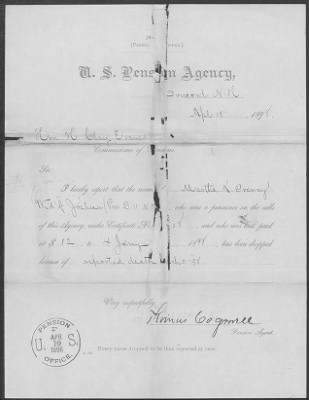 U. S. Pension Agency,
Concord N. H.
Apl 18 1898.
Hon H. Clay Evans
Commissioner of Pensions
Sir:
I hereby report that the name of Martha
who was a pensioner on the rolls
of this Agency, under Certificate No. and who was last paid
at $ 12 to 4 Jany 1898 has been dropped
because of reported death
Very respectfully,
Thomas Cogswell
Pension Agent.
Every name dropped to be thus reported at once.
PENSION
U. S.
APR
19
1898
OFFICE.